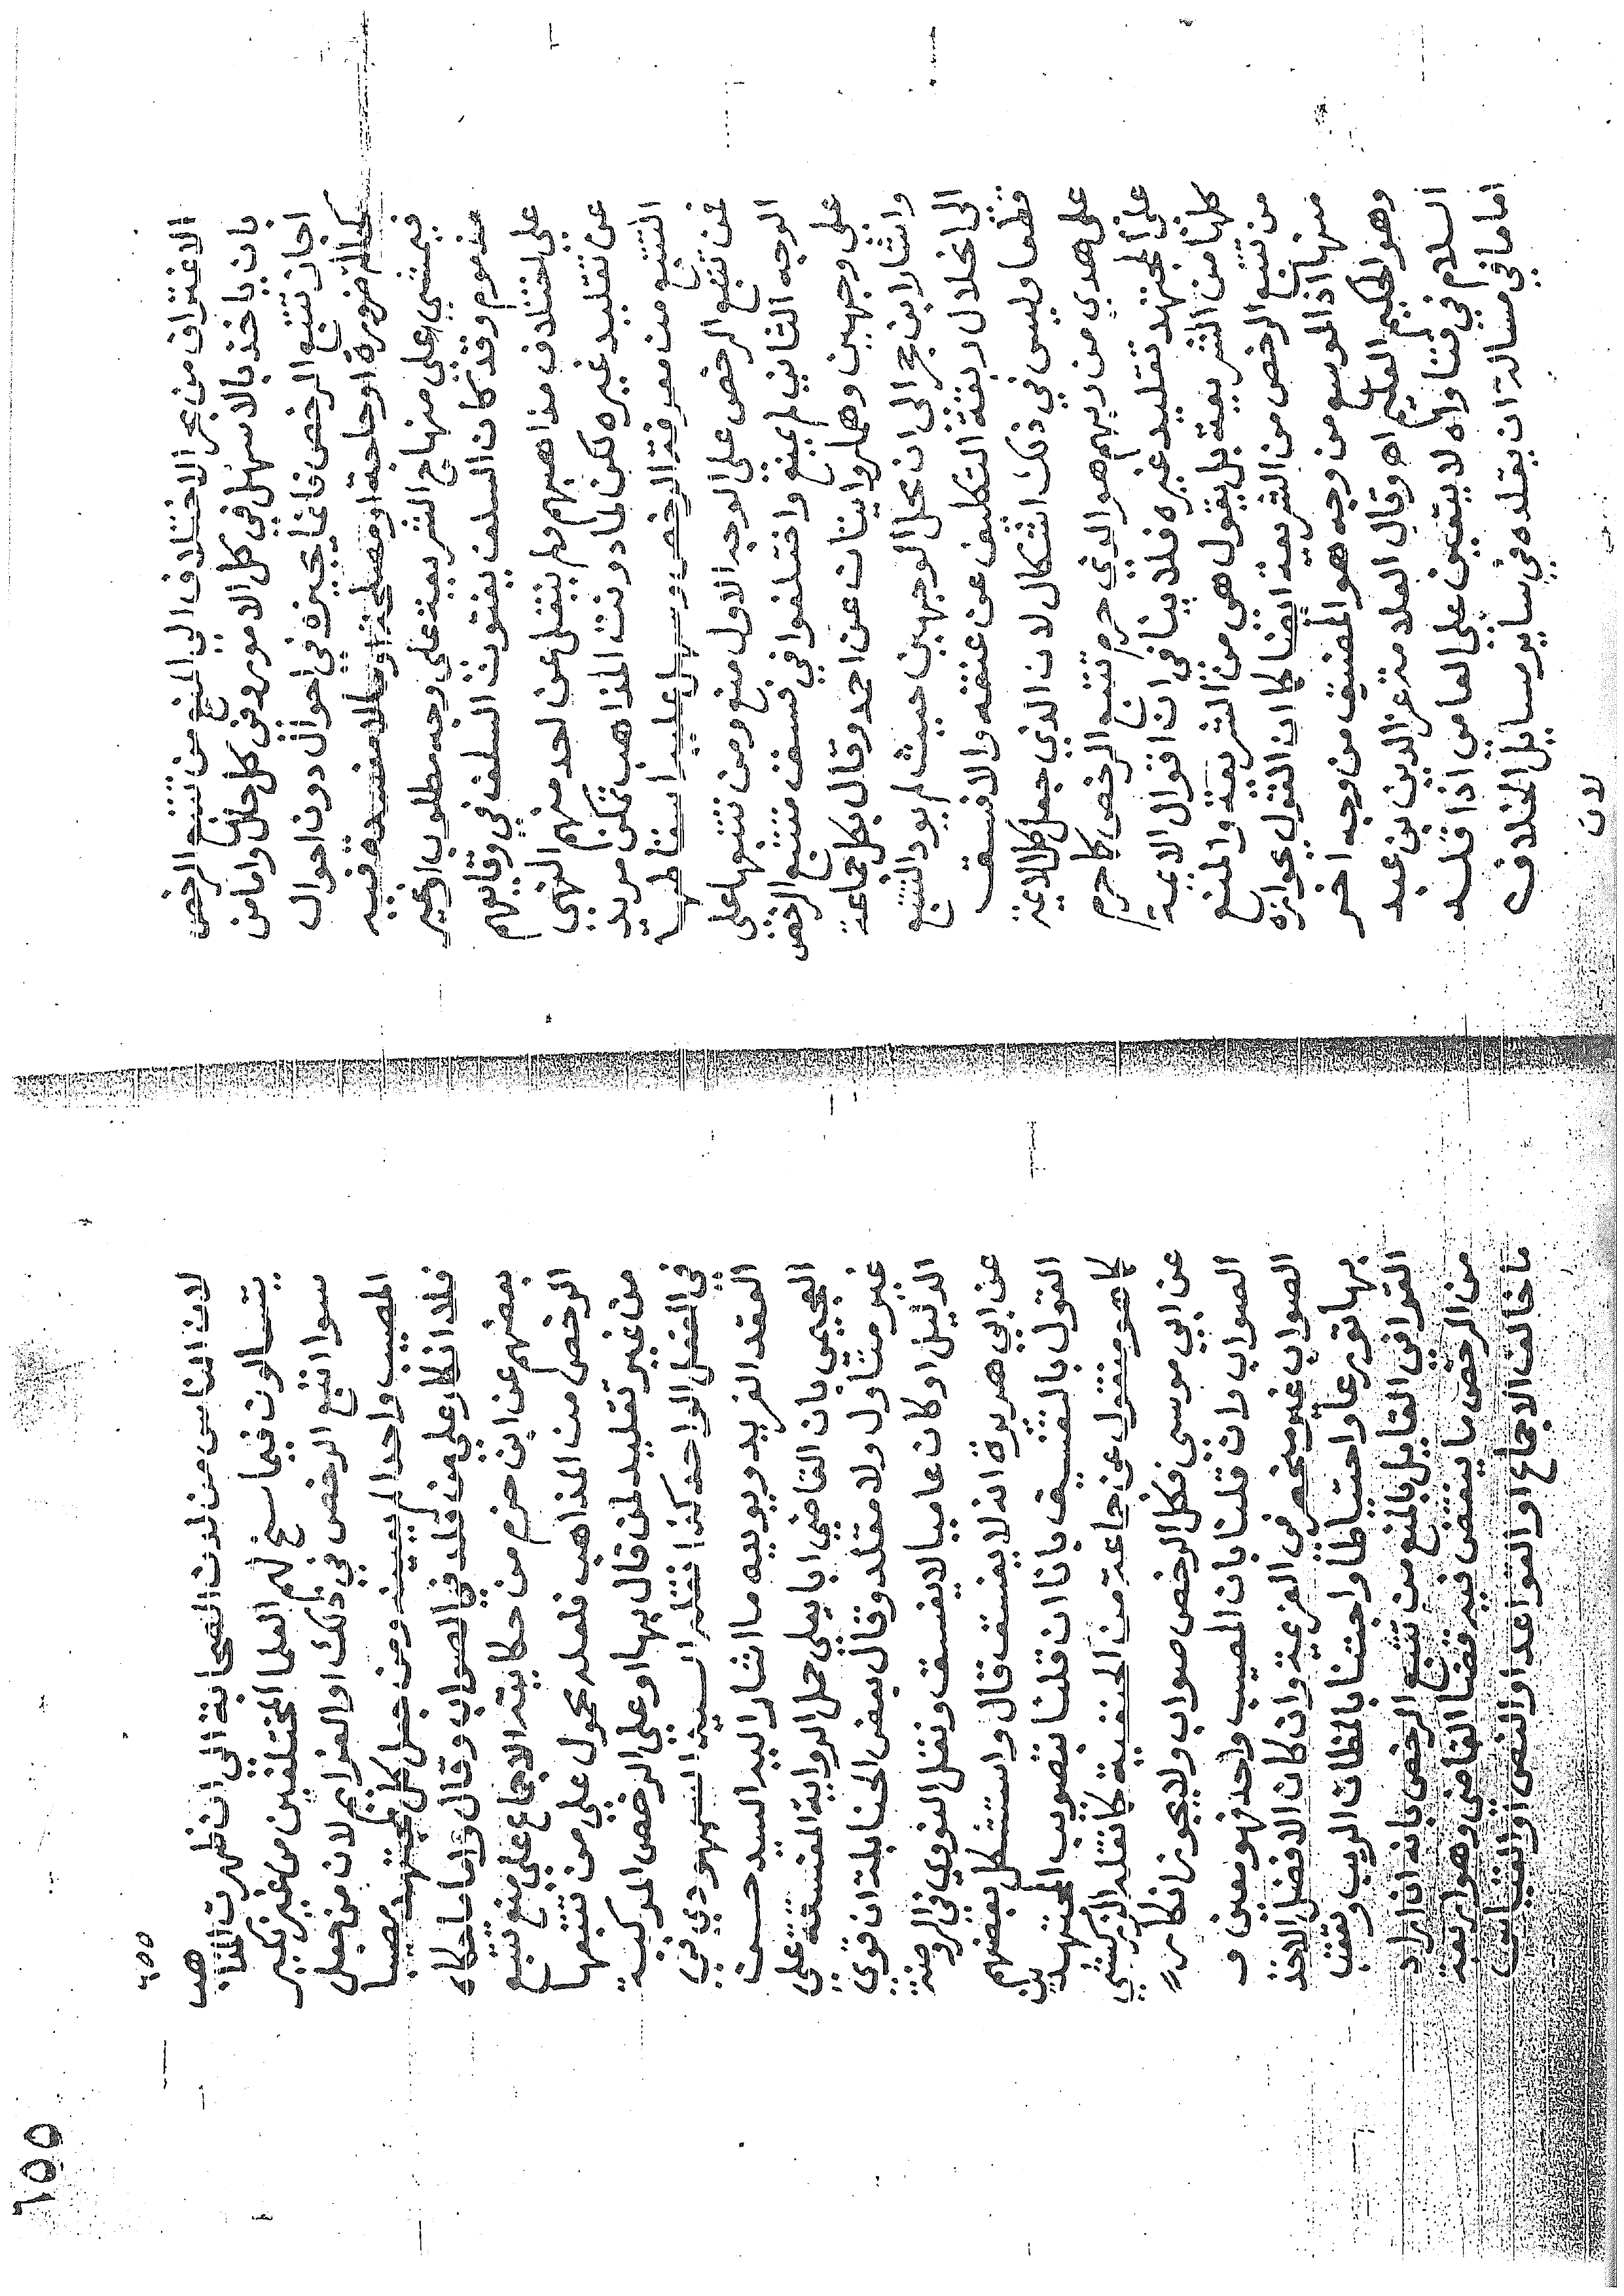 الاغتراف من بحر الاختلاف الى المنع من تتبع الرخص
بان ياخذ بالاسهل في كل الامور وفي كل حال واما من
اجاز تتبع الرخص فانما يجيزه في احوال دون احوال
كحالة ضرورة او حاجة او مصلحة او مالا مفسدة فيه
فيمشي على منهاج الشريعة على وجه مطلوب او غير
مذموم وقد كان السلف يفتون السلف في وقايعهم
على اختلاف مذاهبهم ولم ينقل عن احد منهم النهي
عن تقليد غيره لكن لما دونت المذاهب تمكن مريد
التتبع من معرفة الرخص وسهل عليه التقاطها
فمن تتبع الرخص على الوجه الاول منع ومن تتبعها على
الوجه الثاني لم يمنع واختلفوا في فسق متتبع الرخص
على وجهين وهما روايتان عن احمد وقال بكل جماعة
واشار ابن حجر الى ان محل الوجهين حيث لم يود التتبع
الى انحلال ربقة التكليف عن عنقه والا فسق
قطعا وليس في ذلك اشكال لان الذي جعل كل الائمة
على هدي من ربهم هو الذي حرم تتبع الرخص كما حرم
على المجتهد تقليد غيره فلا ينافي ان اقوال الائمة
كلها من الشريعة بل يقول هي من الشريعة والمنع
من تتبع الرخص من الشريعة ايضا كما ان القول بجوازه
منها اذ الموسع من وجه هو المضيق من وجه اخر
وهو الحكيم العليم اهـ وقال العلامة عز الدين بن عبد
السلام في فتاواه لا يتعين على العامي اذا قلد
اماما في مسالة ان يقلده في ساير مسايل الخلاف
لان
٦٥٥
لان الناس من لدن الصحابة الى ان ظهرت المذاهب
يتسالون فيما سنح لهم العلما المختلفين من غير نكير
سوا اتبع الرخص في ذلك او العزايم لان من جعل
المصيب واحدا لم يعينه ومن جعل كل مجتهد مصيبا
فلا انكار على من قلد في الصواب وقال واما ما حكاه
بعضهم عن ابن حزم من حكاية الاجماع على منع تتبع
الرخص من المذاهب فلعله محمول على من تتبعها
من غير تقليد لمن قال بها او على الرخص المركبة
في الفعل الواحد كذا نقله السيد السمهودي في
العقد الفريد ويويده ما اشار اليه السيد حسن
العجيمي بان القاضي ابا يعلى حمل الرواية المفسقة على
غير متاول ولا مقلد وقال بعض الحنابلة ان قوي
الدليل او كان عاميا لا يفسق ونقل النووي في الروضة
عن ابي هريرة انه لا يفسق قال واستشكل بعضهم
القول بالتفسيق بانا ان قلنا بتصويب المجتهدين
كما هو منقول عن جماعة من الحنفية كما نقله الزركشي
عن ابي موسى فكل الرخص صواب ولا يجوز انكار
الصواب وان قلنا بان المصيب واحد فهو معين و
الصواب غير منحصر في العزيمة وان كان الافضل الاخذ
بها تورعا واحتياطا واجتنابا لمظان الريب وتعقب
القرافي القايل بالمنع من تتبع الرخص بانه ان اراد
من الرخص ما ينقض فيه قضا القاضي وهو اربعة
ما خالف الاجماع او القواعد او النص او القياس
٦٥٥